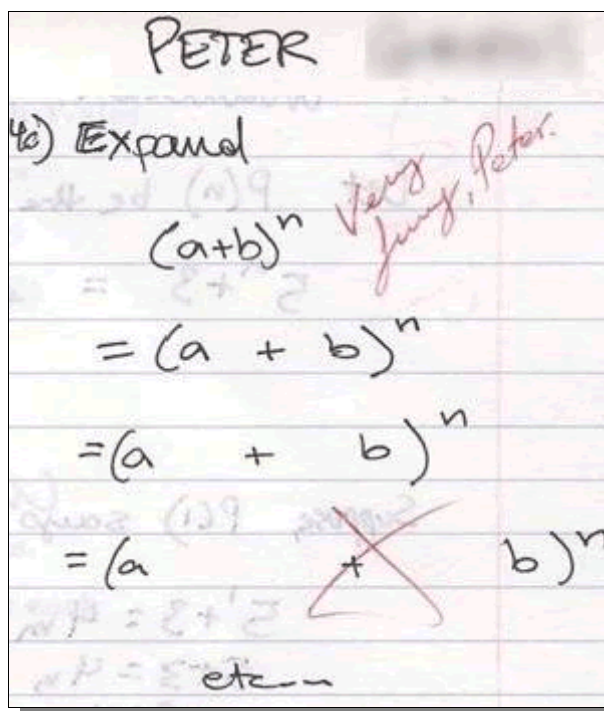 PETER
4c) Expand
Very
funny, Peter.
(a+b)ⁿ
= (a + b)ⁿ
= (a + b)ⁿ
= (a + b)ⁿ
etc...